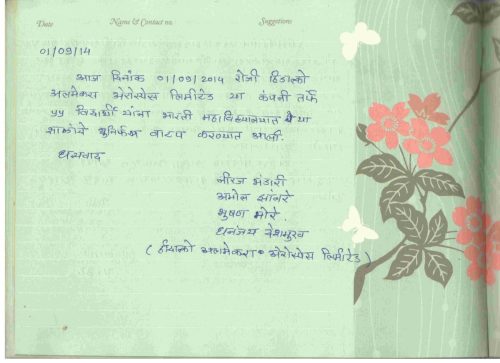 Date Name & Contact no. Suggetions
01/09/14
आज दिनांक 01/09/2014 रोजी हिंडाल्को
अलमेक्स ऐरोस्पेस लिमीटेड या कंपनी तर्फे
५५ विद्यार्थी यांना भारती महाविद्यालयात या
शाळेचे युनिफॉर्म वाटप करण्यात आली.
धन्यवाद
नीरज भंडारी
अमोल सांगरे
भुषण मोरे.
धनंजय देशमुख
( हिंडाल्को अलमेक्स ऐरोस्पेस लिमीटेड )